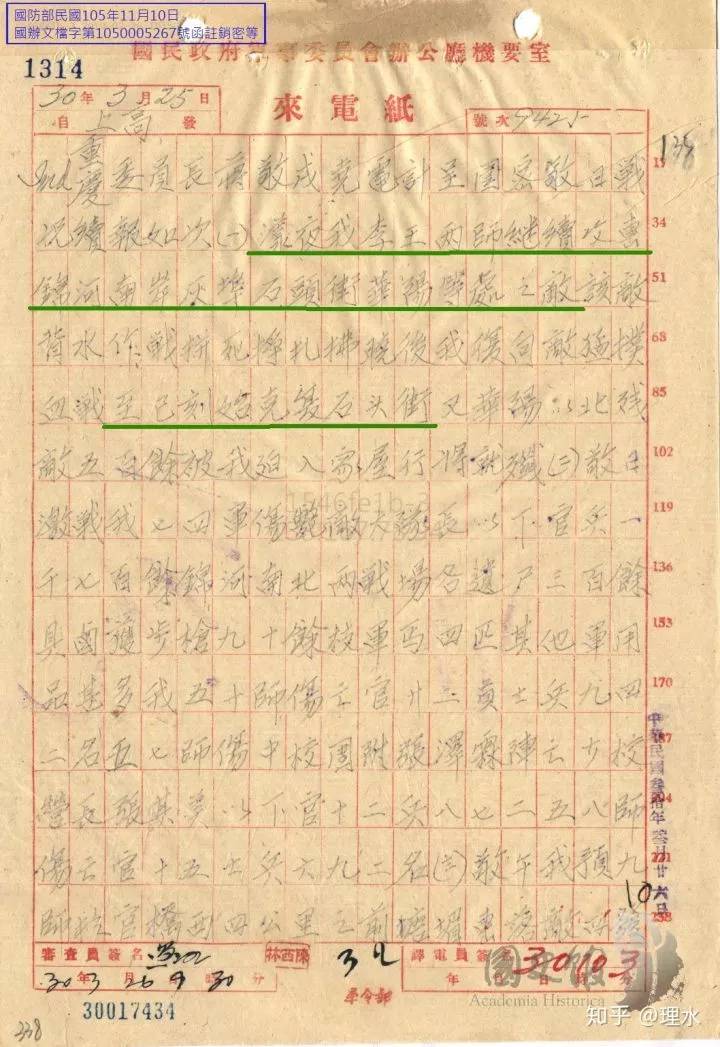 國防部民國105年11月10日
國辦文檔字第1050005267號函註銷密等
1314
國民政府軍事委員會辦公廳機要室
30年3月25日
自上高發
來電紙
號次9425
138
重慶委員長蔣敬戌克電計至圍密敬日戰
況續報如次(一)漾夜我李王兩師繼續攻擊
錦河南岸灰埠石頭街華陽等處之敵該敵
背水作戰拼死掙扎拂曉後我復向敵猛撲
血戰至巳刻始克復石头街又華陽以北殘
敵五百餘被我迫入家屋行將就殲(二)敬日
激戰我七四軍傷斃敵大隊長以下官兵一
千七百餘錦河南北兩戰場各遺尸三百餘
具鹵獲步槍九十餘枝軍馬四匹其他軍用
品甚多我五十師傷亡官廿二員士兵九四
二名五七師傷中校團附張澤霖陣亡少校
營長張以下官十二兵八七二五八師
傷亡官十五士兵六九二名(三)敬午我預九
師於官橋西四公里之前塘增援敵
17
34
51
68
85
102
119
136
153
170
187
204
221
238
中華民國叁拾年
10
審查員簽名
林西陳
30年3月26日 時30分
譯電員簽名
年 月 日 時 分
30103
軍令部
30017434
338
1546fe1b-3
國史館
Academia Historica
知乎 @理水